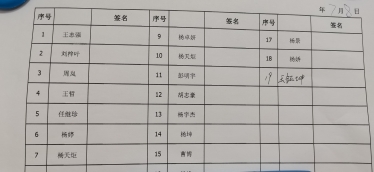 年7月3日
序号 签名 序号 签名 序号 签名
1 王志强 9 杨卓妍 17 杨蕾
2 刘梓叶 10 杨天炬 18 杨娇
3 周岚 11 彭靖宇 19
4 王哲 12 胡志豪
5 任继珍 13 杨宇杰
6 杨婷 14 杨坤
7 杨天炬 15 曹博